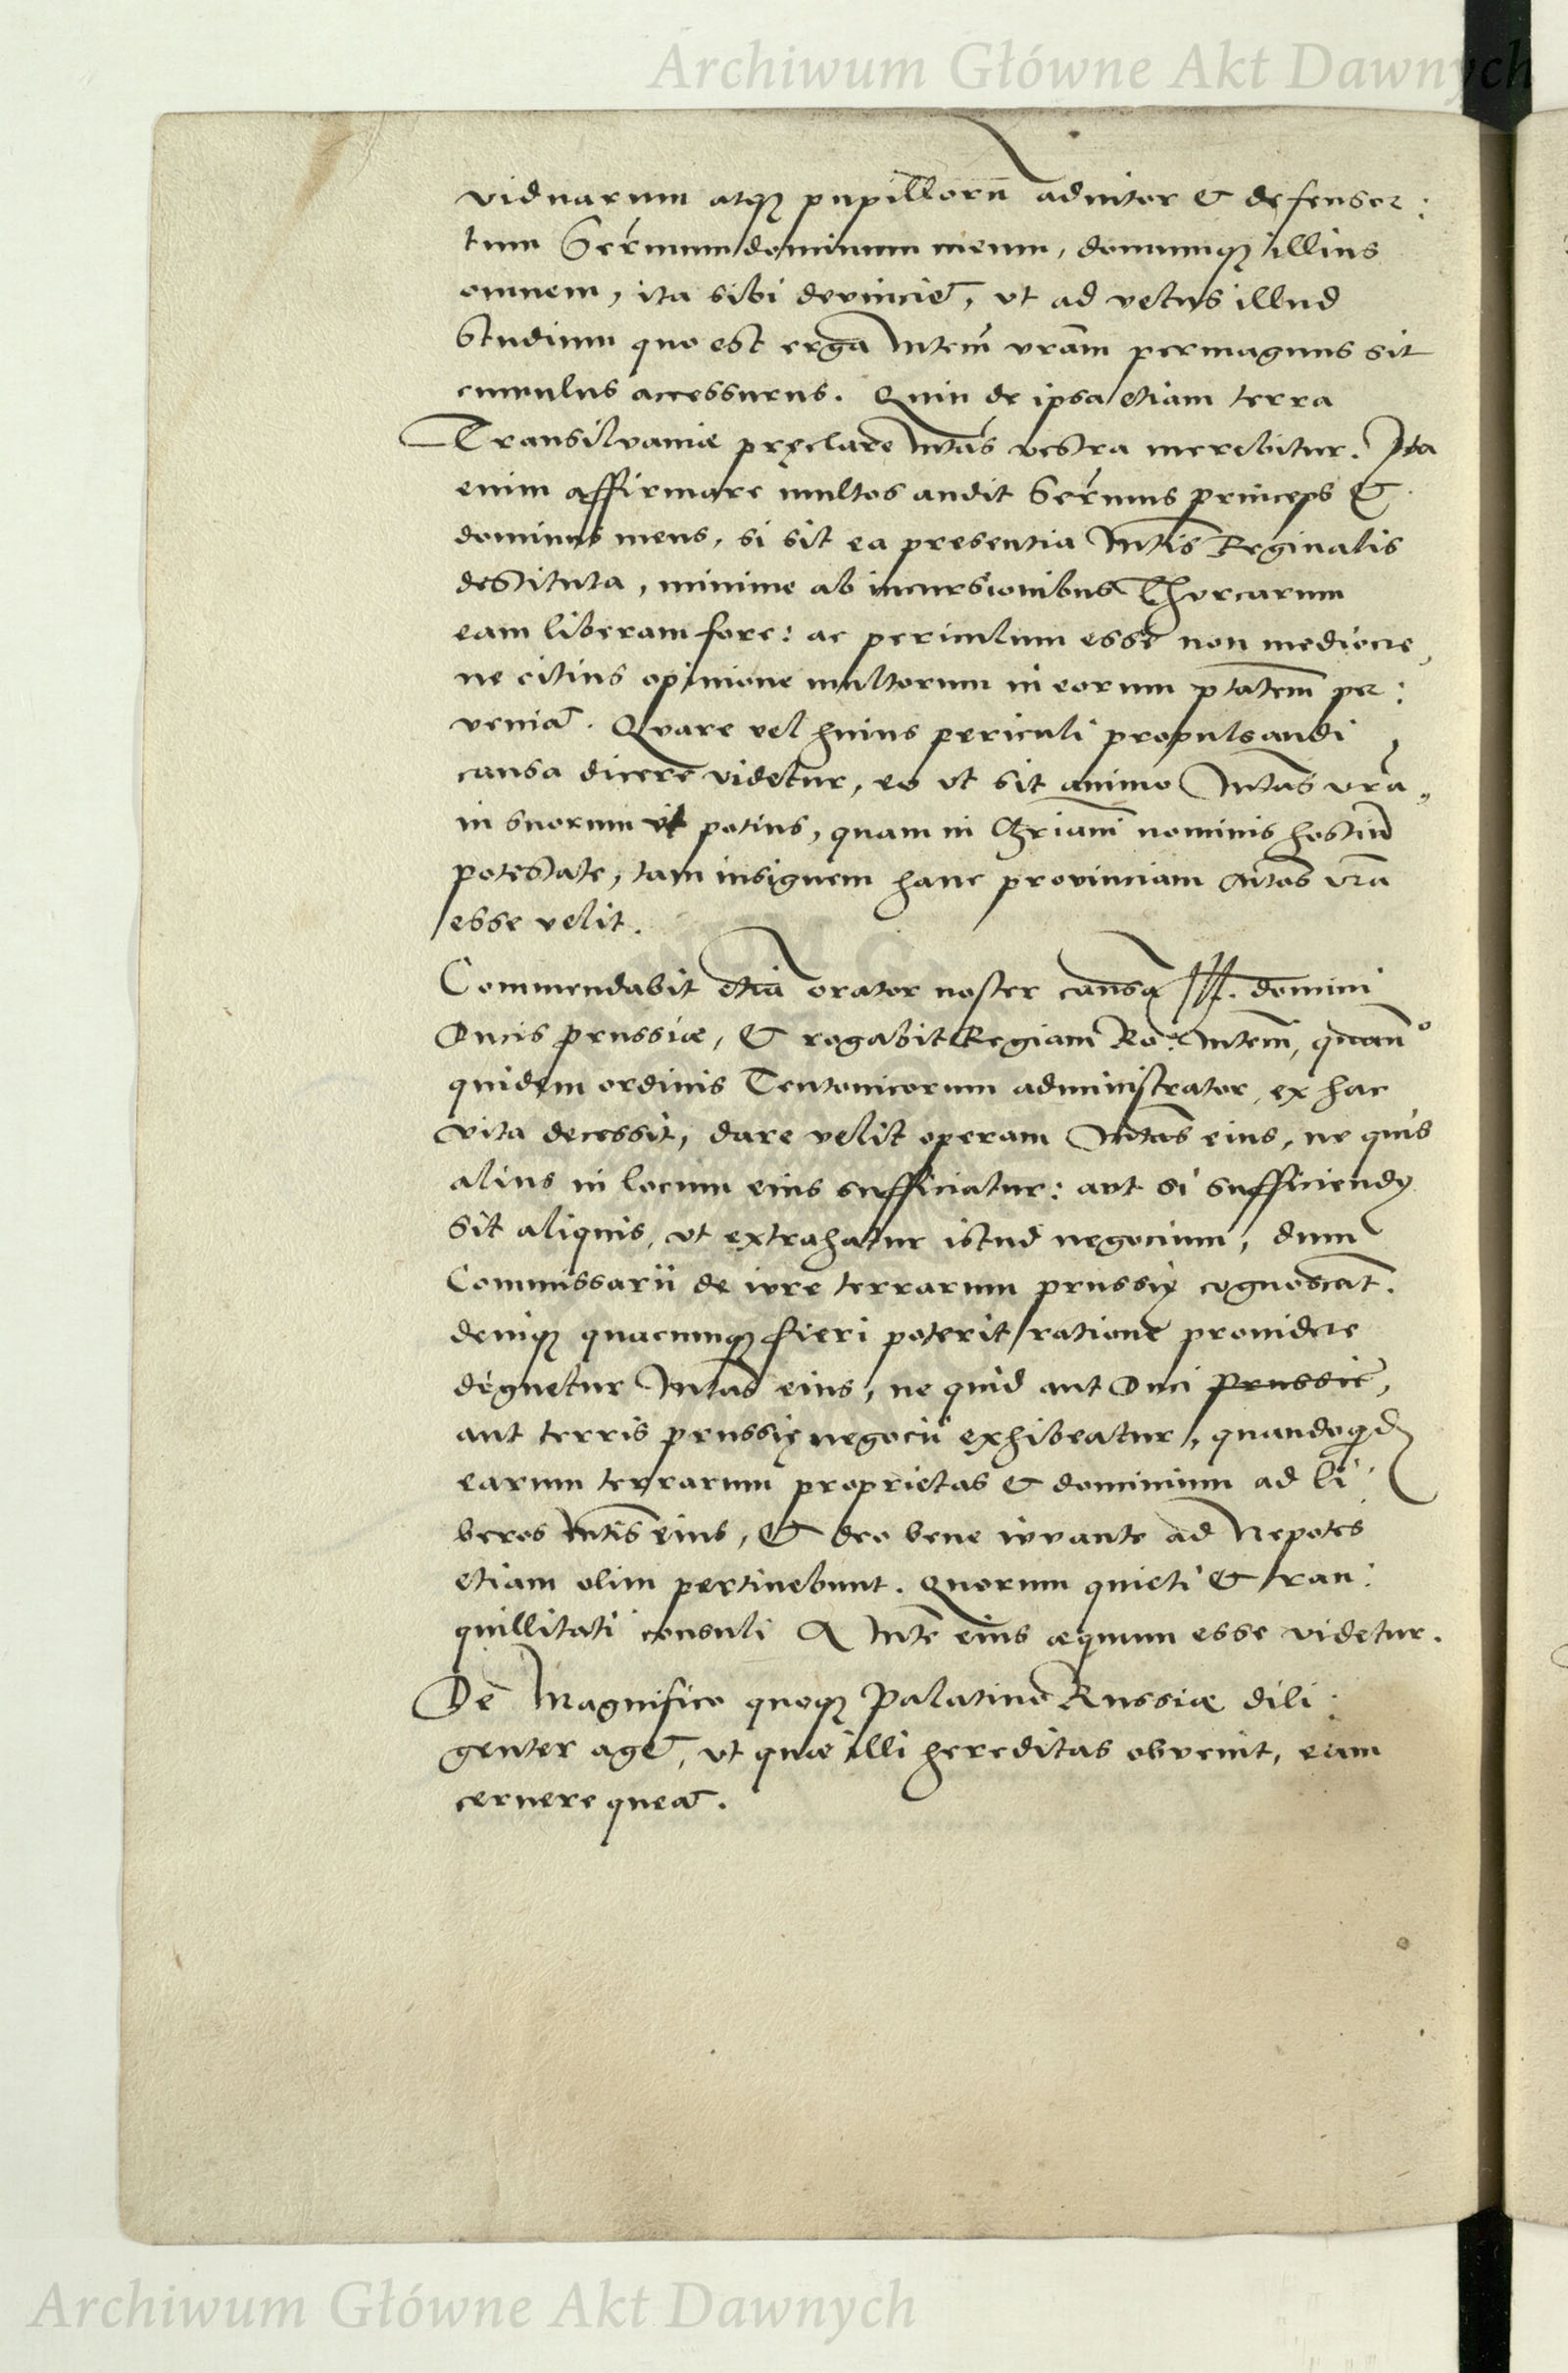 Archiwum Główne Akt Dawnych
viduarum atq₃ pupillorū aduitor & defensor:
tum Serᵐum dominum meum, domumq₃ illius
omnem, ita sibi devinciet, vt ad vetus illud
Studium quo est erga Mtem vrām permagnus sit
cumulus accessurus. Quin de ipsa etiam terra
Transilvaniæ pręclare Mtas vestra merebitur. Ita
enim affirmare multos audit Serᵐus princeps &
dominus meus, si sit ea presentia Mtis Reginalis
destituta, minime ab incursionibus Thurcarum
eam liberam fore: ac periculum esse non mediocre,
ne citius opinione multorum in eorum ptatem per:
veniat. Quare vel huius periculi propulsandi
causa dicere videtur, eo vt sit animo Mtas vrā,
in suorum vt potius, quam in Chriani nominis hostiū
potestate, tam insignem hanc provinciam Mtas vrā
esse velit.
Commendabit etiā orator noster causā Ill. domini
Ducis prussiæ, & rogabit Regiam Ro: Mtem, quan̄o
quidem ordinis Teutonicorum administrator, ex hac
vita decessit, dare velit operam Mtas eius, ne quis
alius in locum eius sufficiatur: aut si sufficiendꝰ
sit aliquis, vt extrahatur istud negocium, dum
Commissarii de iure terrarum prussię cognoscāt.
deniq₃ quacumq₃ fieri poterit ratione providere
dignetur Mtas eius, ne quid aut Duci Prussię,
aut terris prussię negocii exhibeatur, quandoqd
earum terrarum proprietas & dominium ad li:
beros Mtis eius, & deo bene iuvante ad Nepotes
etiam olim pertinebunt. Quorum quieti & tran:
quillitati consuli A Mte eius æquum esse videtur.
De Magnifico quoq₃ Palatino Russiæ dili:
genter aget, vt quæ illi hereditas obvenit, eam
cernere queat.
Archiwum Główne Akt Dawnych